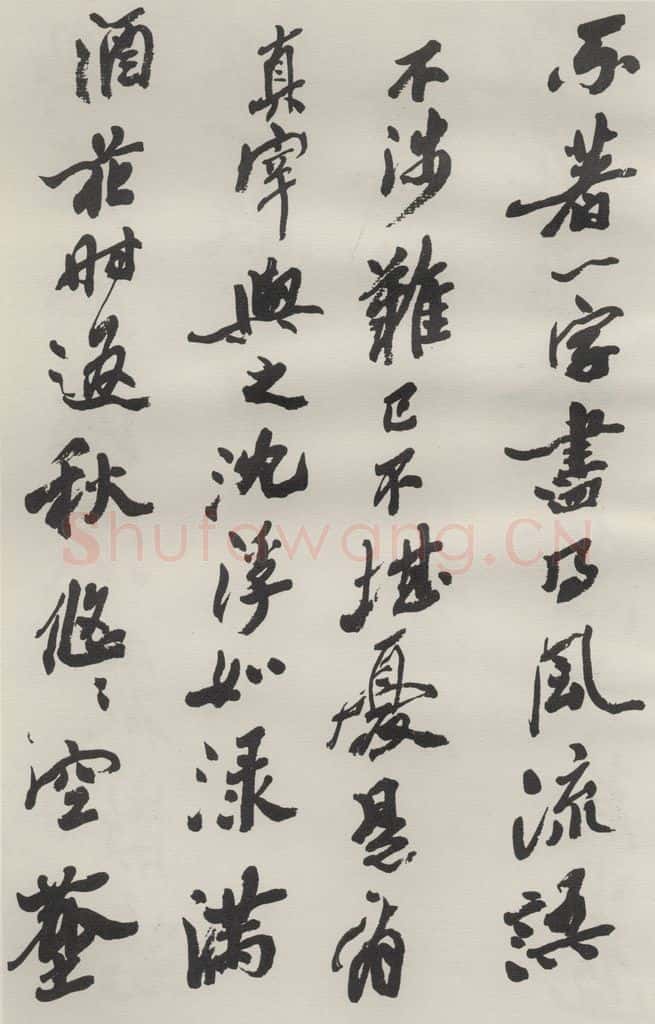 不著一字盡得風流語
不涉難已不堪憂是有
真宰與之沈浮如渌滿
酒花時返秋悠〻空塵
Shufawang.CN